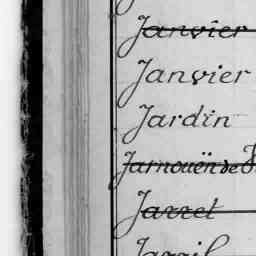 Janvier
Janvier
Jardin
Jarnouën de
Jarret
Jarril